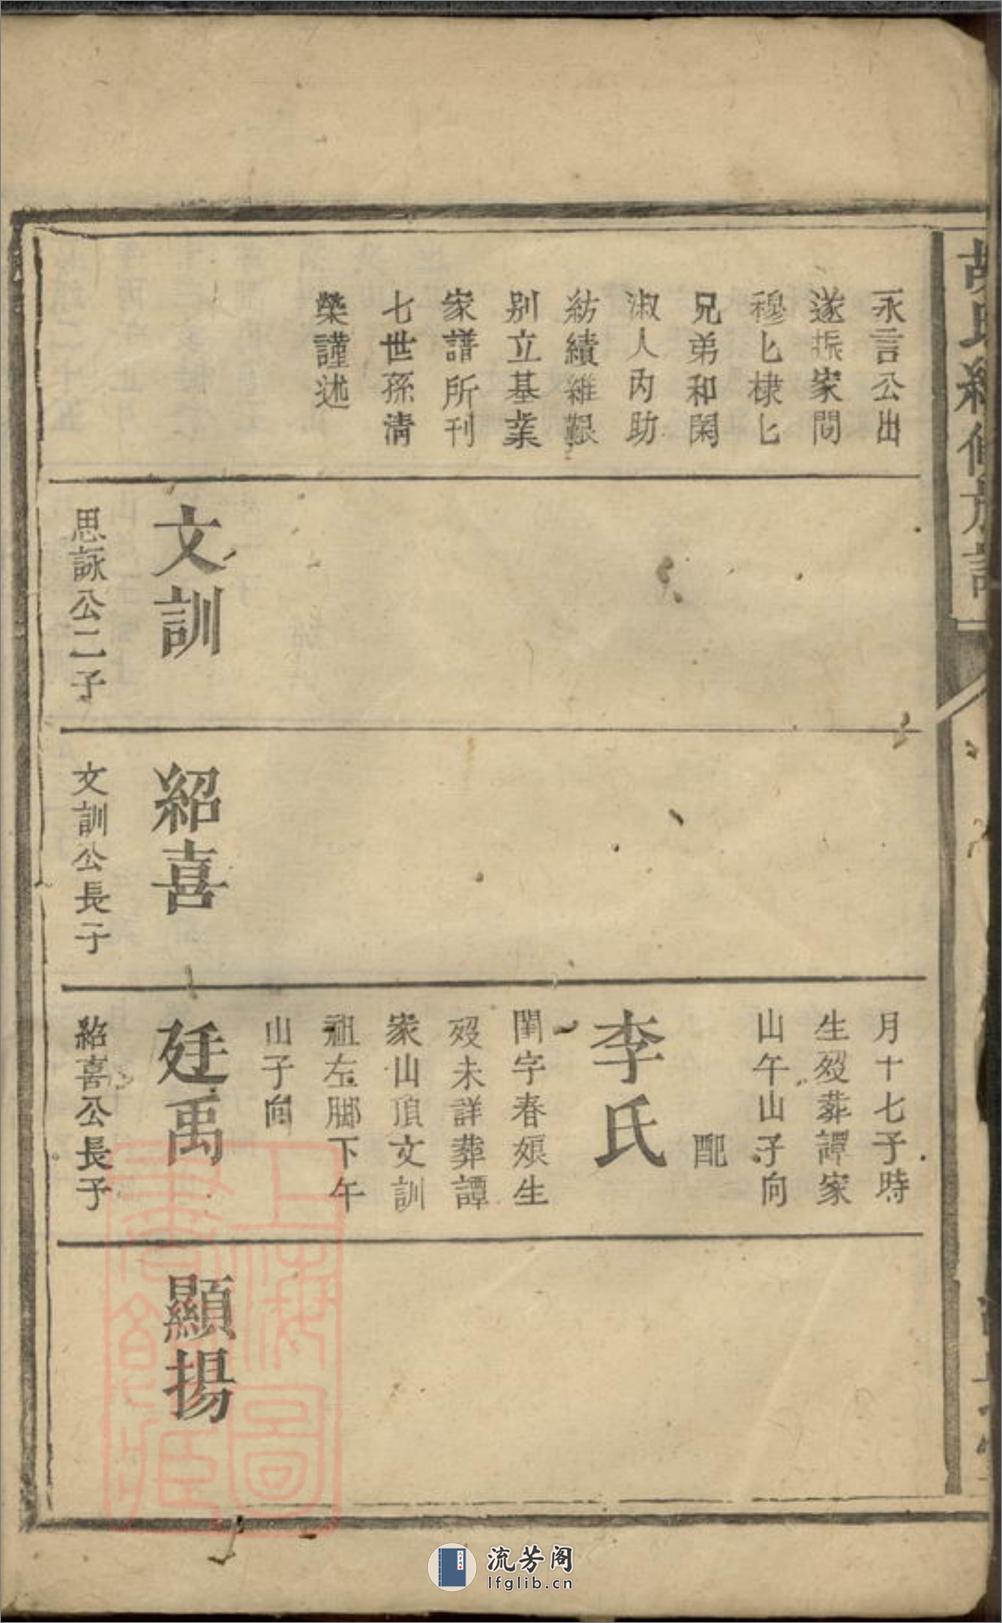 胡氏續修族譜
永言公出
遂振家問
穆匕棣匕
兄弟和閑
淑人內助
紡績維艱
别立基業
家譜所刊
七世孫清
榮謹述
文訓
思詠公二子
紹喜
文訓公長子
月十七子時
生殁葬譚家
山午山子向
配
李氏
閨字春娘生
殁未詳葬譚
家山頂文訓
祖左脚下午
山子向
廷禹
紹喜公長子
顯揚
上海圖書館藏
流芳阁
lfglib.cn